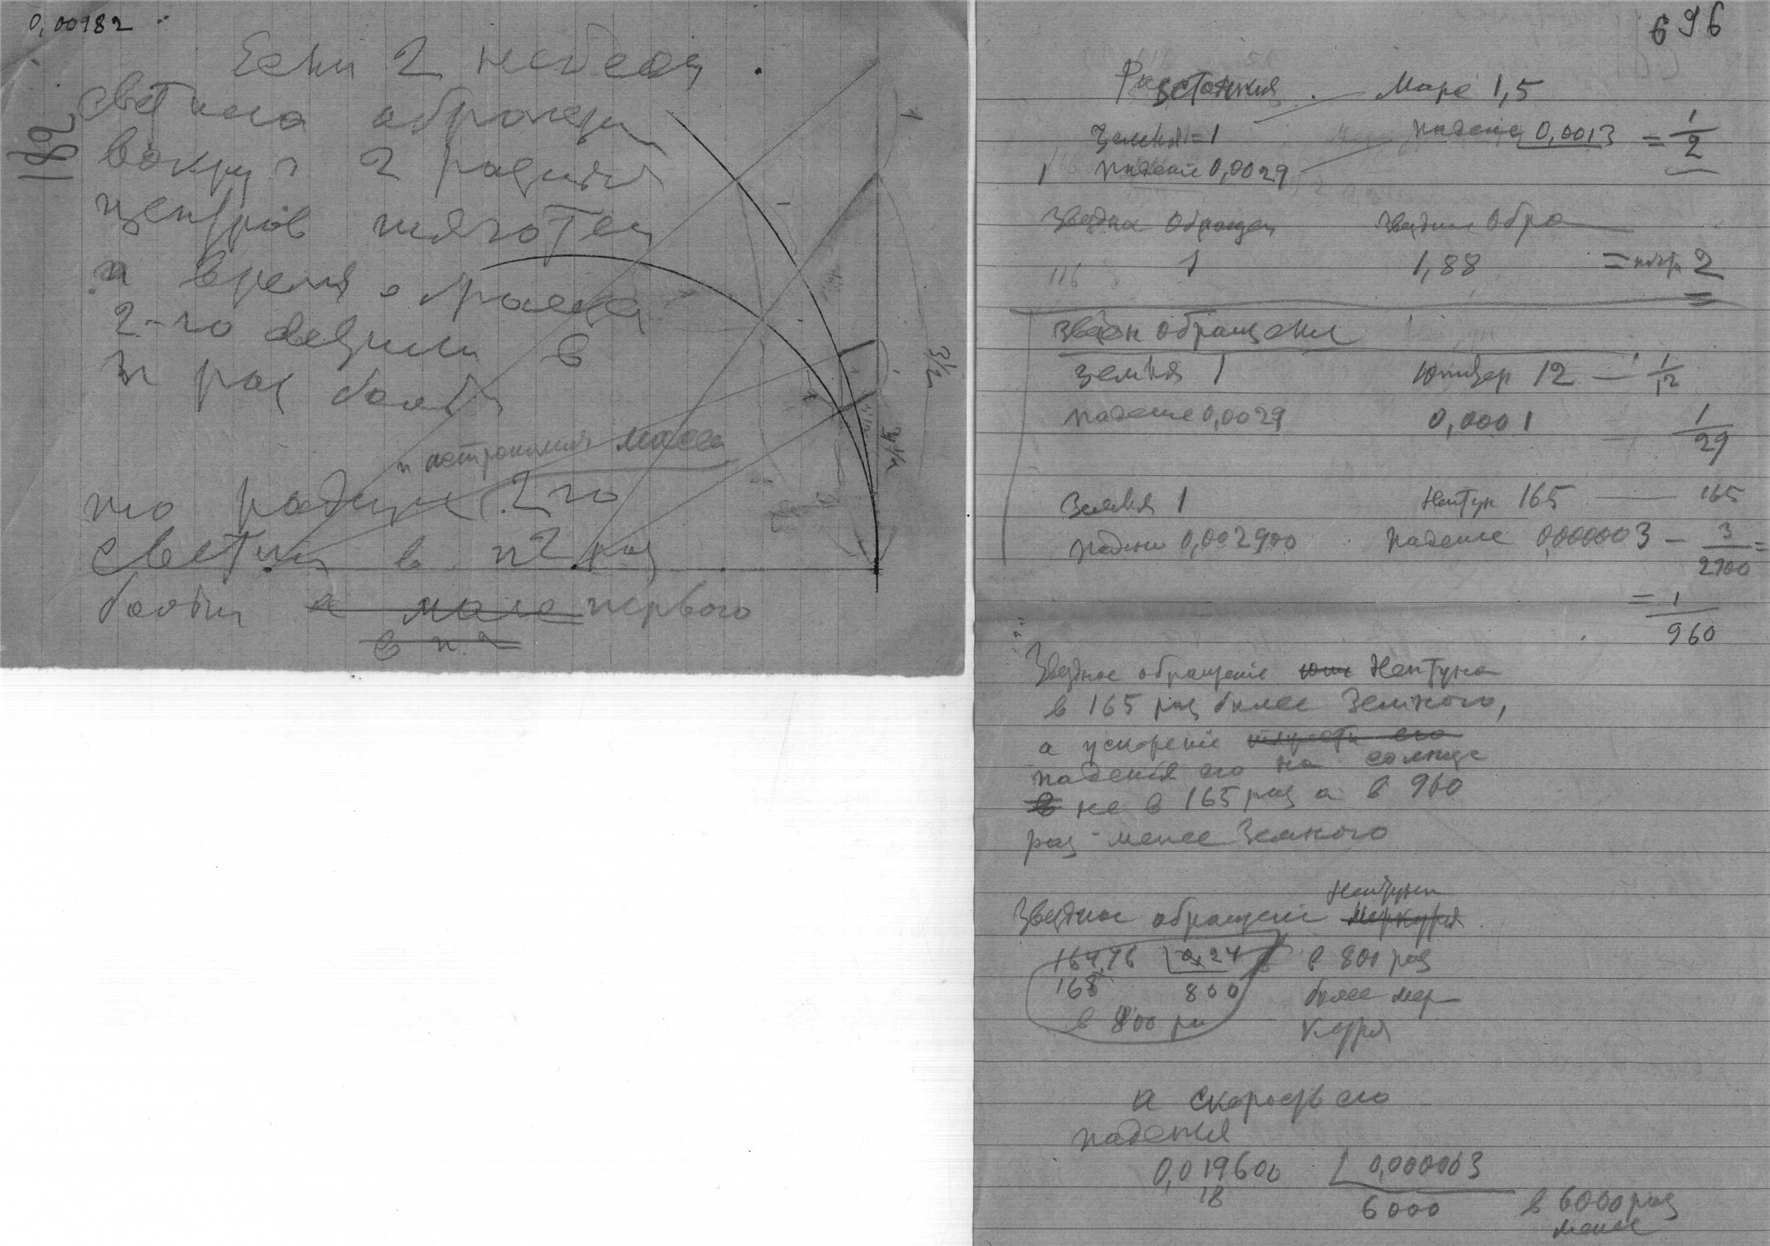 0,00182
182
Если 2 небесн
светила обращен
вокруг 2 разных
центров тяготен
и время обраще
2-го светила в
n раз более
и астрономия масса
то радиус 2го
светил в n2 раз
более а масса первого
в n 2
3/2
696
Расстояния Марс 1,5
Земля = 1 падение 0,0013 = 1/2
1 падение 0,0029
Звездное обращен звездное обра
116 1 1,88 = почти 2
Звездн обращения
Земля 1 Юпитер 12 — 1/12
падение 0,0029 0,0001 1/29
Земля 1 Нептун 165 — 165
падение 0,002900 падение 0,000003 — 3/2900 =
= 1/960
Звездное обращение Юпи Нептуна
в 165 раз более Земного,
а ускорение тяжести его
падения его на солнце
в не в 165 раз а в 960
раз менее Земного
Нептуна
Звездное обращение Меркурия
164,76 0,24 в 800 раз
168 800 более мер
в 800 раз курия
а скорость его
падения
0,019600 0,000003
18 6000 в 6000 раз
менее